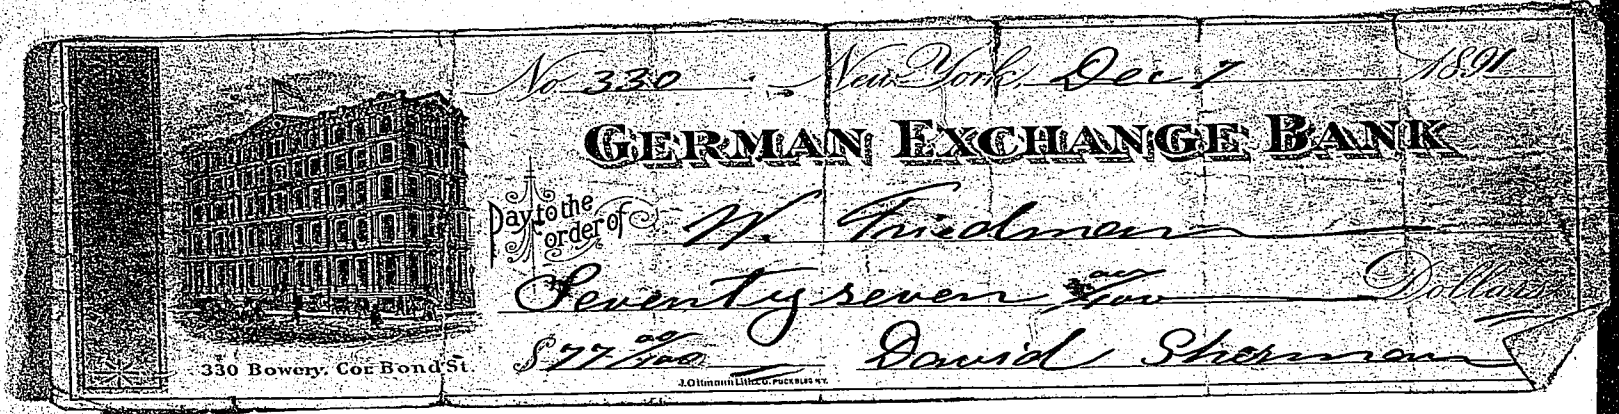 No 330 New York, Dec 7 1891
GERMAN EXCHANGE BANK
Pay to the order of W. Friedman
Seventy seven 00/100 Dollars
$77 00/100 David Sherman
330 Bowery. Cor. Bond St.
J. Ottmann Lith. Co. PUCK BLDG N.Y.